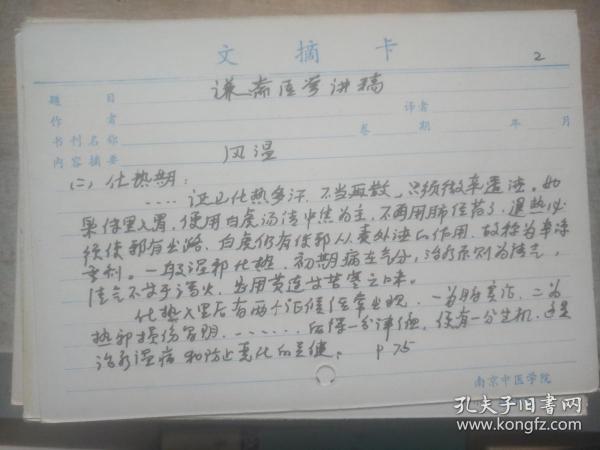 文摘卡
2
题目 谦斋医学讲稿
作者 译者
书刊名称 卷 期 年 月
内容摘要 风温
(二) 化热期:
……证见化热多汗,不当再散,只须微辛透法。如
果传里入胃,便用白虎汤清中焦为主,不再用肺经药了,退热必
须使邪有出路,白虎仍有使邪从表外达的作用,故称为辛凉
重剂。一般温邪化热,初期病在气分,治疗原则为清气,
清气不等于泻火,勿用黄连等苦寒之味。
化热入里后有两个证候经常出现,一为肠实证,二为
热邪损伤胃阴,……后保一分津液,便有一分生机,这是
治疗温病和防止恶化的关键。 P75
南京中医学院
孔夫子旧书网
www.kongfz.com